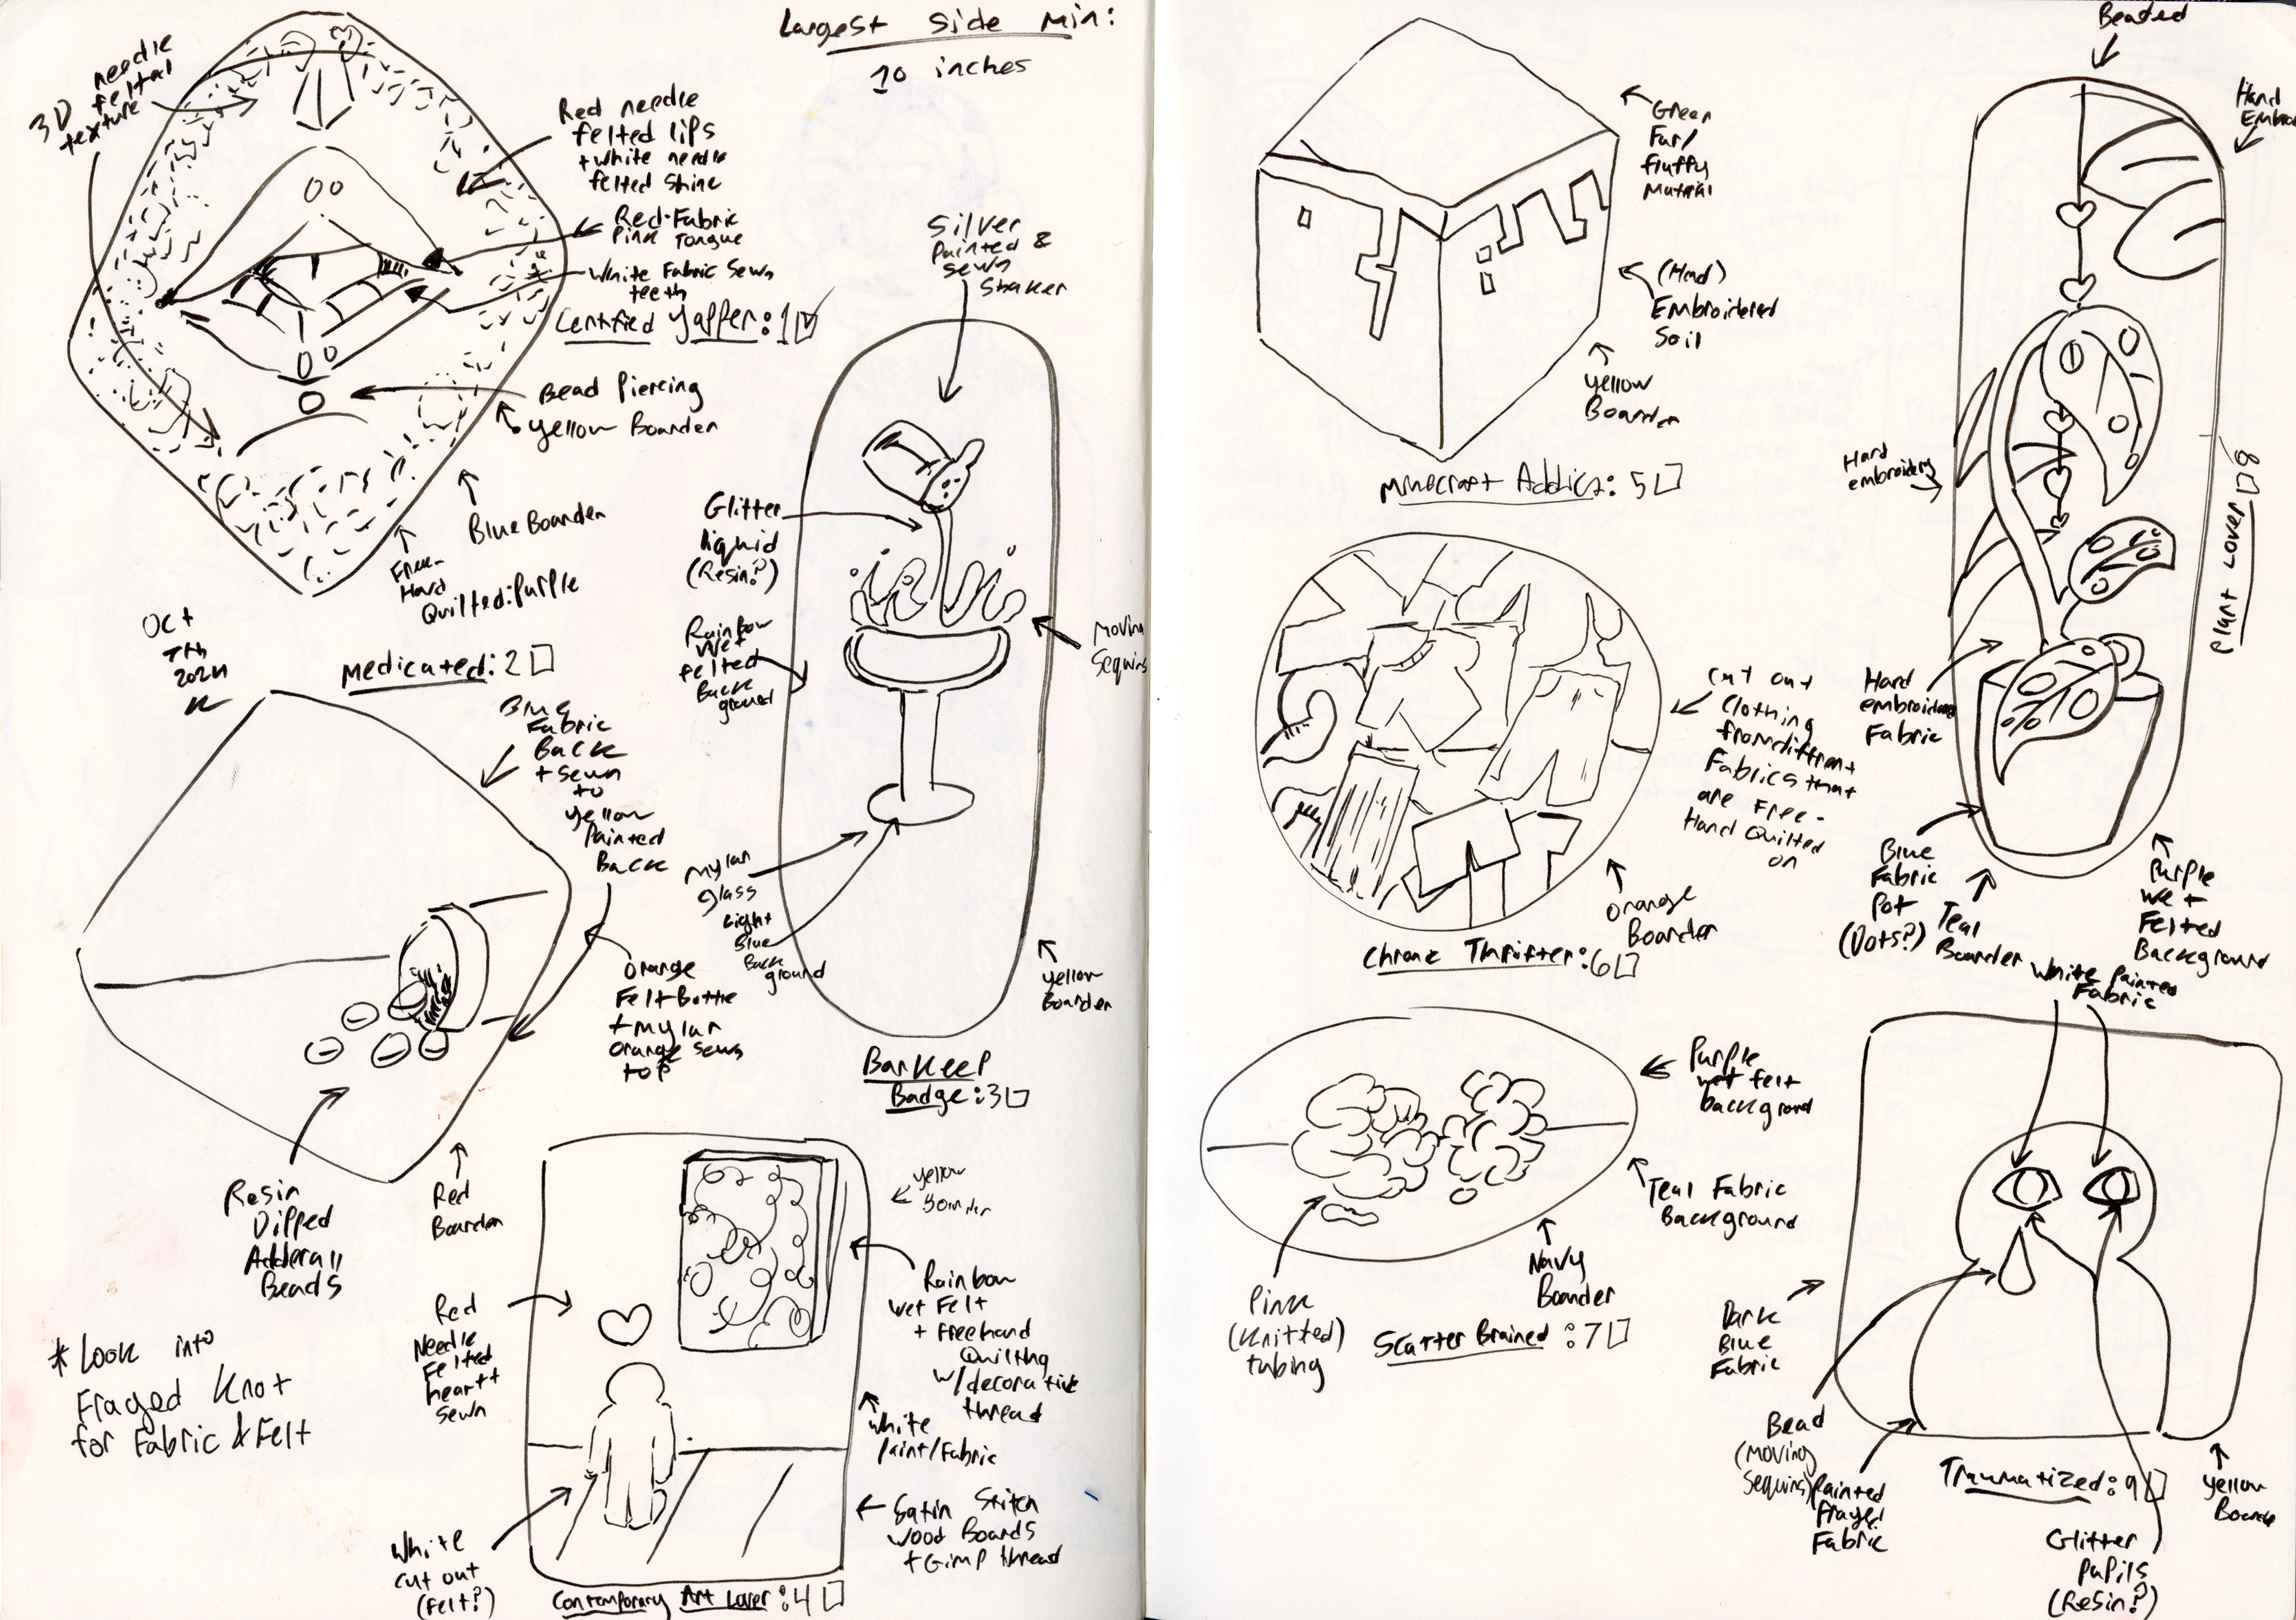 Largest Side Min:
10 inches
3D needle
felted
texture
Red needle
felted lips
+ white needle
felted shine
Red Fabric
Pink Tongue
White Fabric Sewn
teeth
Certified Yapper: 1
Bead Piercing
Yellow Boarder
Blue Boarder
Free-
Hand
Quilted: Purple
Oct
7th
2024
Medicated: 2
Blue
Fabric
Back
+ sewn
to
yellow
Painted
Back
Orange
Felt Bottle
+ mylar
orange sewn
top
Resin
Dipped
Adderall
Beads
Red
Boarder
* Look into
Frayed Knot
for Fabric & Felt
Silver
Painted &
sewn
Shaker
Glitter
liquid
(Resin?)
Rainbow
Wet
felted
Back
ground
Moving
Sequins
Mylar
glass
Light
Blue
Back
ground
Yellow
Boarder
Barkeep
Badge: 3
Yellow
Boarder
Red
Needle
Felted
heart +
sewn
Rainbow
wet Felt
+ Freehand
Quilting
w/decorative
thread
White
Paint/Fabric
Satin Stitch
Wood Boards
+ Gimp thread
White
cut out
(Felt?)
Contemporary Art Lover: 4
Green
Fur/
fluffy
Material
(Hand)
Embroidered
Soil
Yellow
Boarder
Minecraft Addict: 5
Cut out
Clothing
from diffrent
Fabrics that
are Free-
Hand Quilted
on
Orange
Boarder
Chronic Thrifter: 6
Purple
wet felt
background
Teal Fabric
Background
Navy
Boarder
Pink
(Knitted)
tubing
Scatter Brained: 7
Beaded
Hand
Hand
embroidery
Plant Lover 8
Hand
embroidered
Fabric
Blue
Fabric
Pot
(Dots?)
Teal
Boarder
Purple
Wet
Felted
Background
White Painted
Fabric
Dark
Blue
Fabric
Bead
(Moving
Sequins)
Painted
Frayed
Fabric
Traumatized: 9
Yellow
Glitter
Pupils
(Resin?)